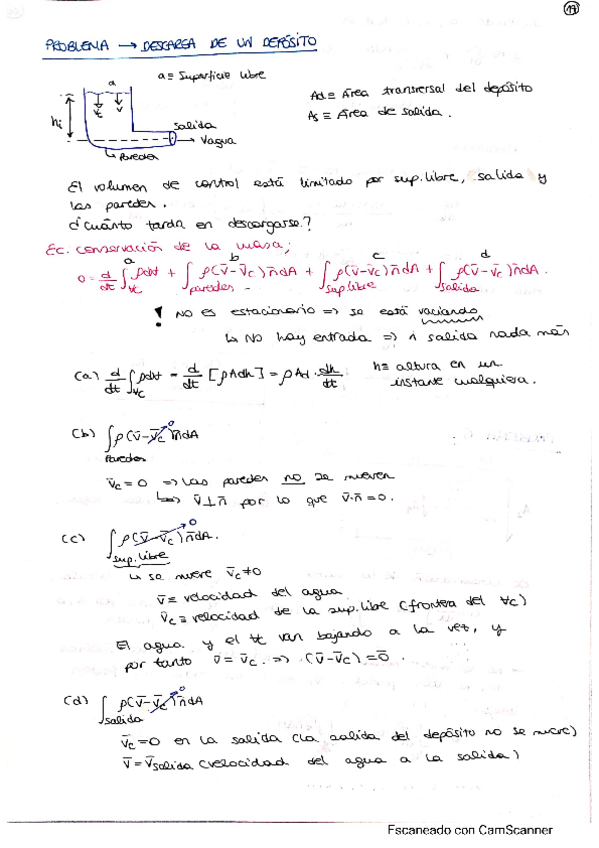 19
PROBLEMA → DESCARGA DE UN DEPÓSITO
a ≡ Superficie libre
a
Ad ≡ Área transversal del depósito
As ≡ Área de salida.
hi
Salida
Vagua
Paredes
El volumen de control está limitado por sup. libre, salida y
las paredes.
¿Cuánto tarda en descargarse?
Ec. conservación de la masa;
a b c d
0 = d/dt ∫Vc ρdV + ∫paredes ρ(v̄-v̄c)n̄dA + ∫sup.libre ρ(v̄-v̄c)n̄dA + ∫salida ρ(v̄-v̄c)n̄dA.
! NO es estacionario => se está vaciando
↳ NO hay entrada => 1 salida nada más
(a) d/dt ∫Vc ρdV = d/dt [ρAdh] = ρAd · dh/dt
h ≡ altura en un
instante cualquiera.
(b) ∫paredes ρ(v̄-v̄c)n̄dA
0
v̄c = 0 => las paredes no se mueven
↳ v̄⊥n̄ por lo que v̄·n̄ = 0.
(c) ∫sup.libre ρ(v̄-v̄c)n̄dA.
0
↳ se mueve v̄c ≠ 0
v̄ ≡ velocidad del agua
v̄c ≡ velocidad de la sup. libre (frontera del Vc)
El agua y el Vc van bajando a la vez, y
por tanto v̄ = v̄c. => (v̄-v̄c) = 0̄.
(d) ∫salida ρ(v̄-v̄c)n̄dA
0
v̄c = 0 en la salida (la salida del depósito no se mueve)
v̄ = v̄salida (velocidad del agua a la salida)
Escaneado con CamScanner